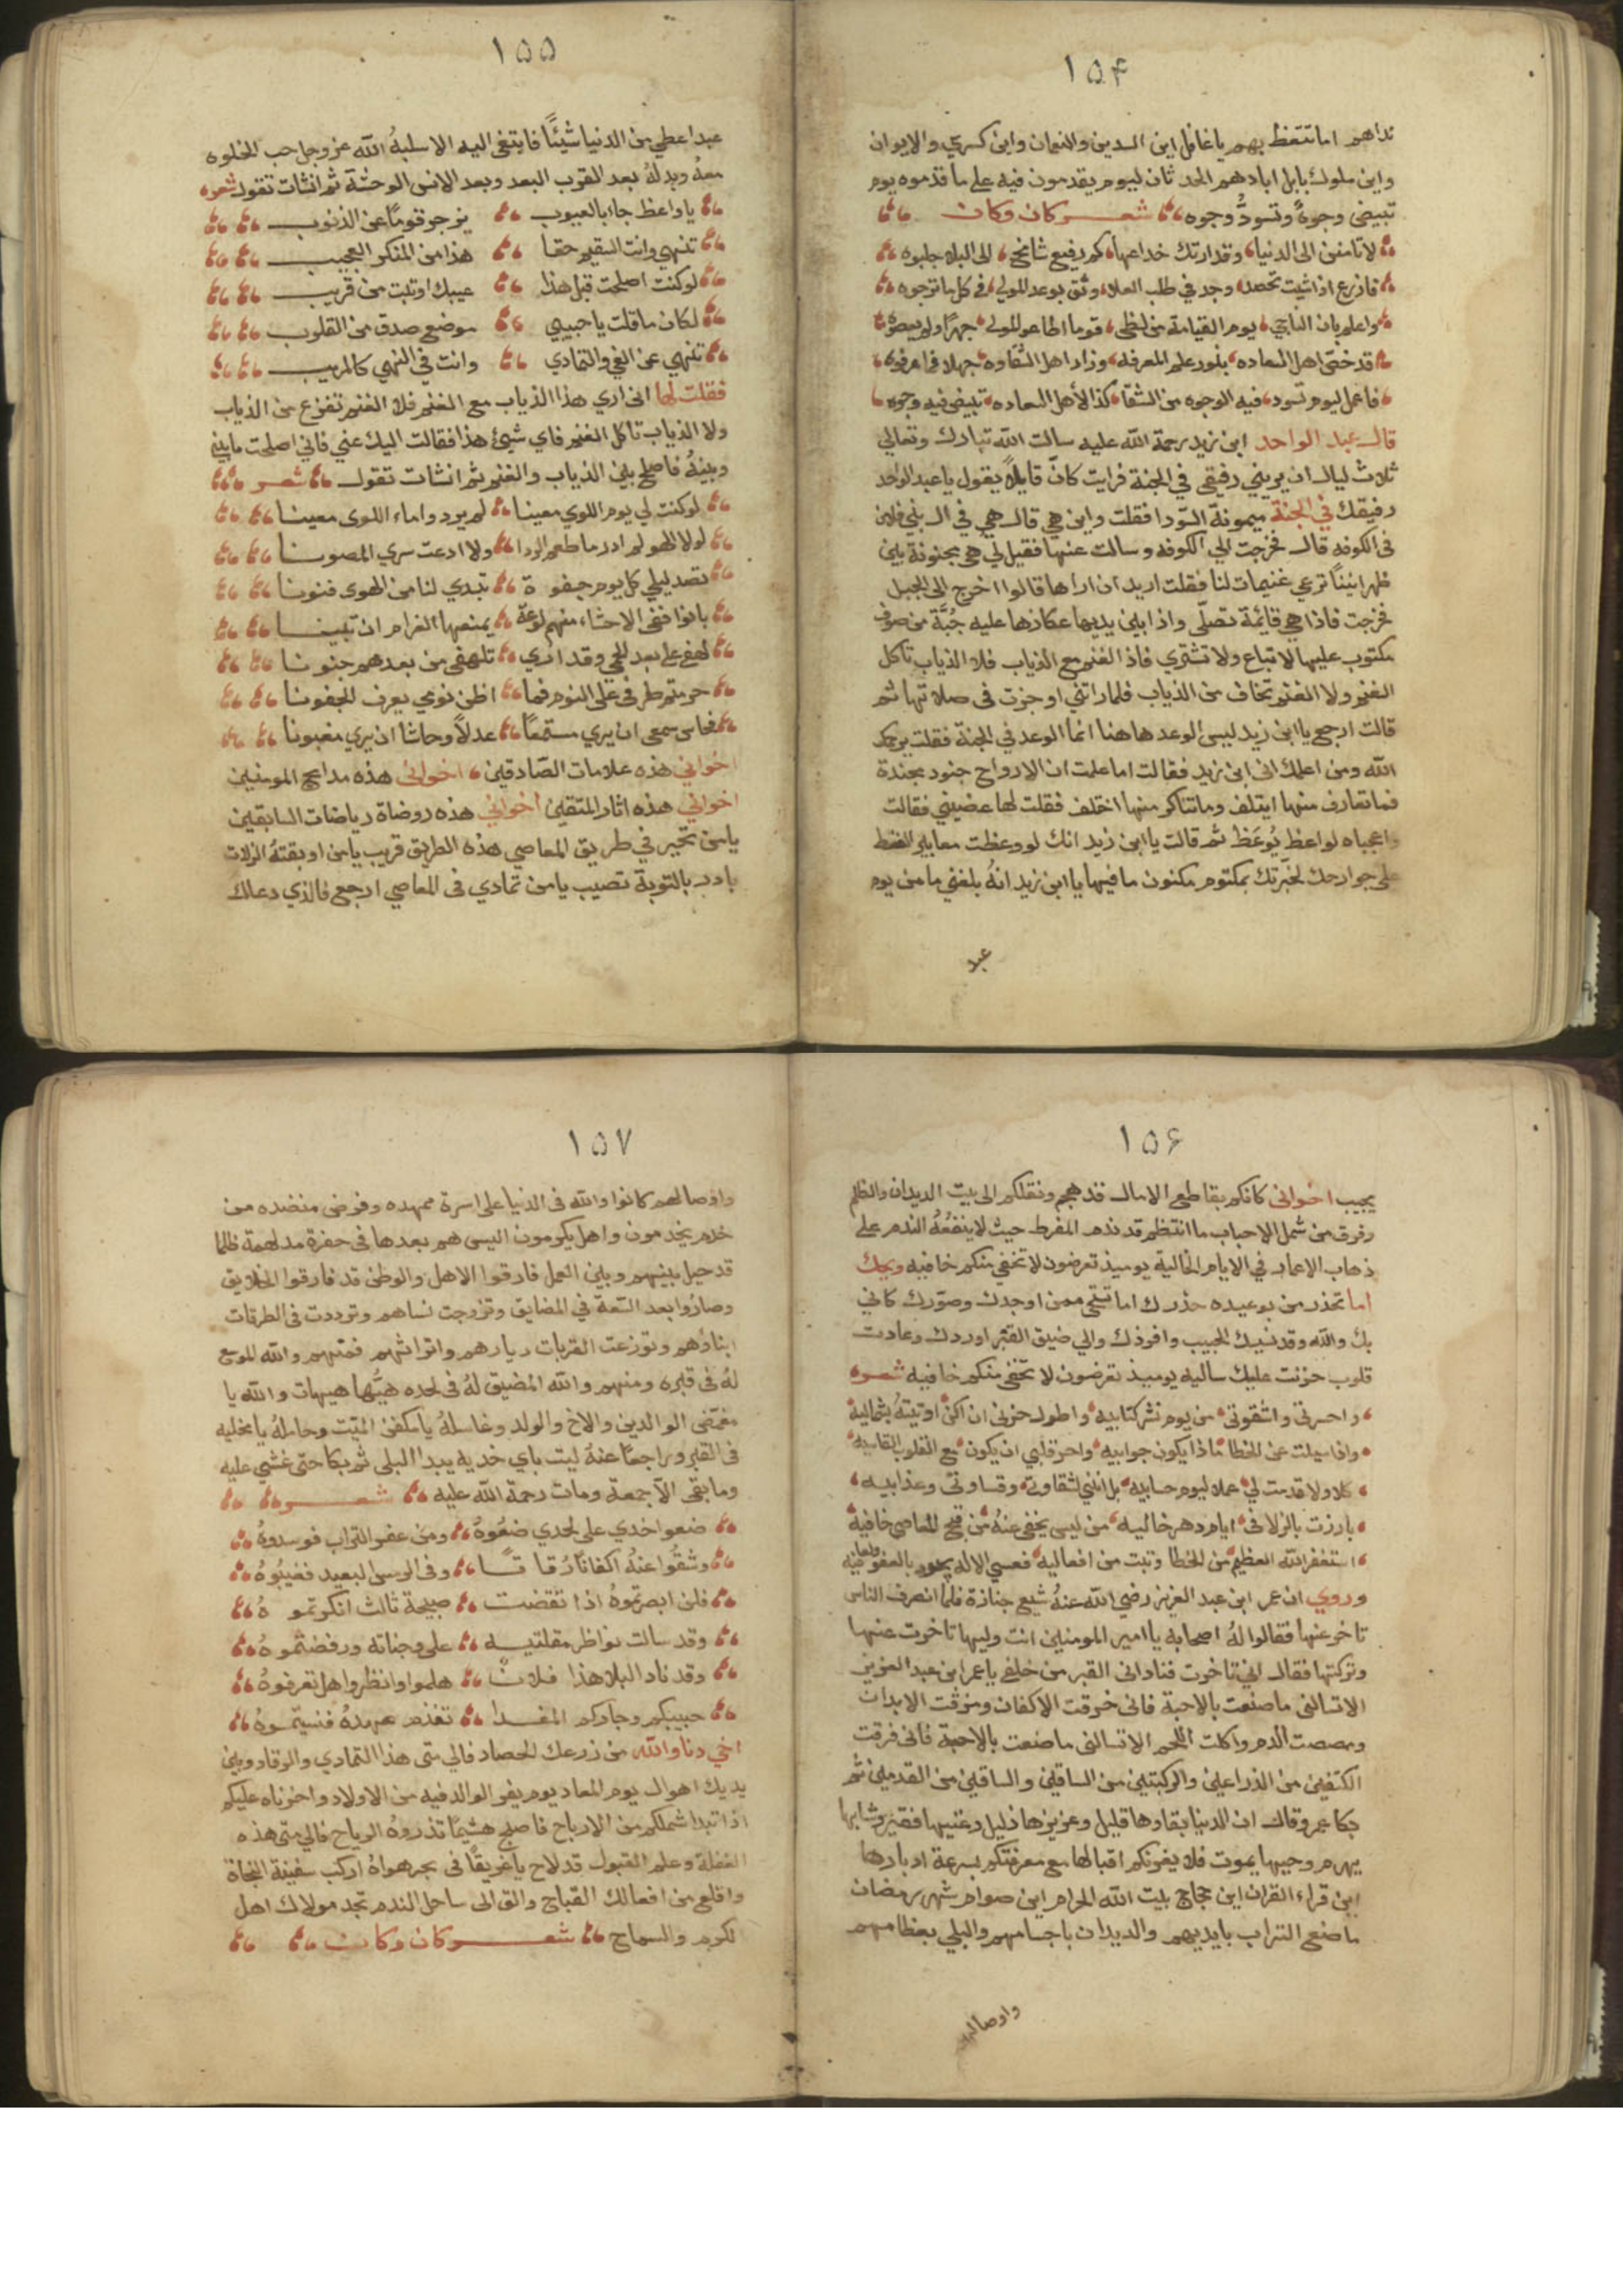 ١٥۴
نداهم اما تتعظ بهم يا غافل اين السدين والنعمان واين كسري والايوان
واين ملوك بابل ابادهم الحد ثان ليوم يقدمون فيه على ما قدموه يوم
تبيض وجوهٌ وتسودُّ وجوه شعر كان وكان
لا تامنن الى الدنيا وقد ارتك خداعها كم رفيع شامخ الى البلا جلبوه
فازرع اذا شيت تحصد وجد في طلب العلا وثق بوعد المولي في كل ما ترجوه
واعلم بان الناجي يوم القيامة من لظى قوما اطاعو المولى جهرًا ولم يعصوه
قد خصّ اهل السعاده بنور علم المعرفه وزاد اهل الشقاوه جهلا فما عرفوه
فاعمل ليوم تسود فيه الوجوه من الشقا كذا لأهل السعاده تبيض فيه وجوه
قال عبد الواحد ابن زيد رحمة الله عليه سالت الله تبارك وتعالي
ثلاث ليال ان يريني رفيقي في الجنة فرايت كانّ قايلاً يقول يا عبد الواحد
رفيقك في الجنة ميمونة السّودا فقلت واين هي قال هي في ال بني فلان
في الكوفه قال فخرجت الي الكوفه وسالت عنها فقيل لي هي مجنونة بين
ظهرانينا ترعي غنيمات لنا فقلت اريد ان اراها قالوا اخرج الى الجبل
فخرجت فاذا هي قائمة تصلّي واذا بين يديها عكازها عليه جُبّة من صوف
مكتوب عليها لا تباع ولا تشتري فاذ الغنم مع الذياب فلا الذياب تاكل
الغنم ولا الغنم تخاف من الذياب فلما راتني اوجزت في صلاتها ثم
قالت ارجع يا ابن زيد ليس الوعد هاهنا انما الوعد في الجنة فقلت يرحمك
الله ومن اعلمك اني ابن زيد فقالت اما علمت ان الارواح جنود مجندة
فما تعارف منها ايتلف وما تناكر منها اختلف فقلت لها عضيني فقالت
واعجباه لواعظ يُوعَظ ثم قالت يا ابن زيد انك لو وعظت معاير القسط
على جوارحك لخبّرتك بمكتوم مكنون ما فيها يا ابن زيد انهُ بلغني ما من يوم
عبد
١٥٥
عبد اعطي من الدنيا شيئًا فابتغى اليه الا سلبهُ الله عز وجل حب الخلوه
معهُ وبدلهُ بعد القرب البعد وبعد الانس الوحشة ثم انشات تقول شعره
يا واعظ جاء بالعيوب يزجر قومًا عن الذنوب
تنهى وانت السقيم حقا هذا من المنكر العجيب
لو كنت اصلحت قبل هذا عيبك او تبت من قريب
لكان ما قلت يا حبيبي موضع صدق من القلوب
تنهي عن الغي والتمادي وانت في النهي كالمريب
فقلت لها اني اري هذا الذياب مع الغنم فلا الغنم تفزع من الذياب
ولا الذياب تاكل الغنم فاي شيئ هذا فقالت اليك عني فاني اصلحت ما بيني
وبينهُ فاصلح بين الذياب والغنم ثم انشات تقول شعر
لو كنت لي يوم اللوي معينا لم يرد واماء اللوى معينا
لولا الهو لم ادر ما طعم الردا ولا ادعت سري المصونا
تصد ليلي كل يوم جفوة تبدي لنا من الهوى فنونا
بانوا ففي الاحشاء منهم لوعة يمنعها الغرام ان تبينا
لهفي على بعد الحي وقد اري تلهفي من بعدهم جنونا
حرمتم طرفي على النوم فما اظن نومي يعرف الجفونا
فحاس سمعى ان يري مستمعًا عدلاً وحاشا ان يري مغبونا
اخواني هذه علامات الصّادقين اخواني هذه مدايح المومنين
اخواني هذه اثار المتقين اخواني هذه روضاة رياضات السابقين
يا من تحير في طريق المعاصي هذه الطريق قريب يا من اوبقتهُ الزلات
بادر بالتوبة تصيب يا من تمادي في المعاصي ارجع فالذي دعاك
١٥۶
يجيب اخواني كانكم بقاطع الامال قد هجم ونقلكم الى بيت الديدان والظلم
وفرق من شمل الاحباب ما انتظم قد ندم المفرط حيث لا ينفعُهُ الندم على
ذهاب الاعمار في الايام الخالية يوميذ تعرضون لا تخفي منكم خافيه ويحك
اما تحذر من بوعيده حذرك اما تستحي ممن اوجدك وصوّرك كاني
بك والله وقد نسيك الحبيب وافردك والي ضيق القبر اوردك وعادت
قلوب حزنت عليك ساليه يوميذ تعرضون لا تخفى منكم خافيه شعره
واحسرتي واشقوتي من يوم نشر كتابيه واطول حزني ان اكن اوتيتهُ بشماليه
واذا سيلت عن الخطا ماذا يكون جوابيه واحر قلبي ان يكون مع القلوب القاسيه
كلا ولا قدمت لي عملا ليوم حسابيه بل انني لشقاوتي وقساوتي وعذابيه
بارزت بالزلات في ايام دهر خاليه من ليس يخفى عنهُ من قبح المعاصي خافية
استغفر الله العظيم من الخطا وتبت من افعاليه فعسي الاله يجود بالعفو والعافيه
وروي ان عمر ابن عبد العزيز رضي الله عنهُ شيع جنازة فلما انصرف الناس
تاخر عنها فقالوا لهُ اصحابه يا امير المومنين انت وليها تاخرت عنها
وتركتها فقال اني تاخرت فناداني القبر من خلفي يا عمر ابن عبد العزيز
الا تسالني ما صنعت بالاحبة فاني خرقت الاكفان ومزقت الابدان
ومصصت الدم واكلت اللحم الا تسالني ما صنعت بالاحبة فاني فرقت
الكتفين من الذراعين والركبتين من الساقين والساقين من القدمين ثم
بكا عمر وقال ان الدنيا بقاوها قليل وعزيزها ذليل وغنيها فقير وشابها
يهرم وحيها يموت فلا يغرنكم اقبالها مع معرفتكم بسرعة ادبارها
اين قراء القران اين حجاج بيت الله الحرام اين صوام شهر رمضان
ما صنع التراب بايديهم والديدان باجسامهم والبلي بعظامهم
واوصالهم
١٥٧
واوصالهم كانوا والله في الدنيا على اسرة ممهده وفرض منضده من
خدم يخدمون واهل يكرمون اليس هم بعدها في حفرة مدلهمة ظلما
قد حيل بينهم وبين العمل فارقوا الاهل والوطن قد فارقوا الخلايق
وصاروا بعد السّعة في المضايق وتزوجت نساهم وترددت في الطرقات
ابناوهم وتوزعت القربات ديارهم واتراثهم فمنهم والله الموسع
لهُ في قبره ومنهم والله المضيق لهُ في لحده هيهات هيهات والله يا
مغمّض الوالدين والاخ والولد وغاسلهُ يا مكفن الميّت وحاملهُ يا مخليه
في القبر وراجعًا عنهُ ليت باي خديه يبدا البلى ثم بكا حتى غشي عليه
وما بقي الاّ جمعة ومات رحمة الله عليه شعره
ضعوا خدي على لحدي ضعُوهُ ومن عفو التراب فوسدوهُ
وشقُوا عنهُ اكفانًا رُقاقًا وفي الرمس البعيد فغيّبُوهُ
فلن ابصرتموهُ اذا تقضت صبيحة ثالث انكرتموهُ
وقد سالت نواظر مقلتيه على وجناته ورفضتموهُ
وقد ناد البلا هذا فلانٌ هلموا وانظروا هل تعرفوهُ
حبيبكم وجاركم المفدا تقدم عهدهُ فنسيتموهُ
اخي دنا والله من زرعك الحصاد فالي متى هذا التمادي والرقاد وبين
يديك اهوال يوم المعاد يوم يفر الوالد فيه من الاولاد واحزناه عليكم
اذا تبدا شملكم من الارباح فاصبح هشيمًا تذروهُ الرياح فالي متى هذه
الغفلة وعلم القبول قد لاح يا غريقًا في بحر هواهُ اركب سفينة النجاة
واقلع من افعالك القباح والق الى ساحل الندم تجد مولاك اهل
لكرم والسماح شعر كان وكان